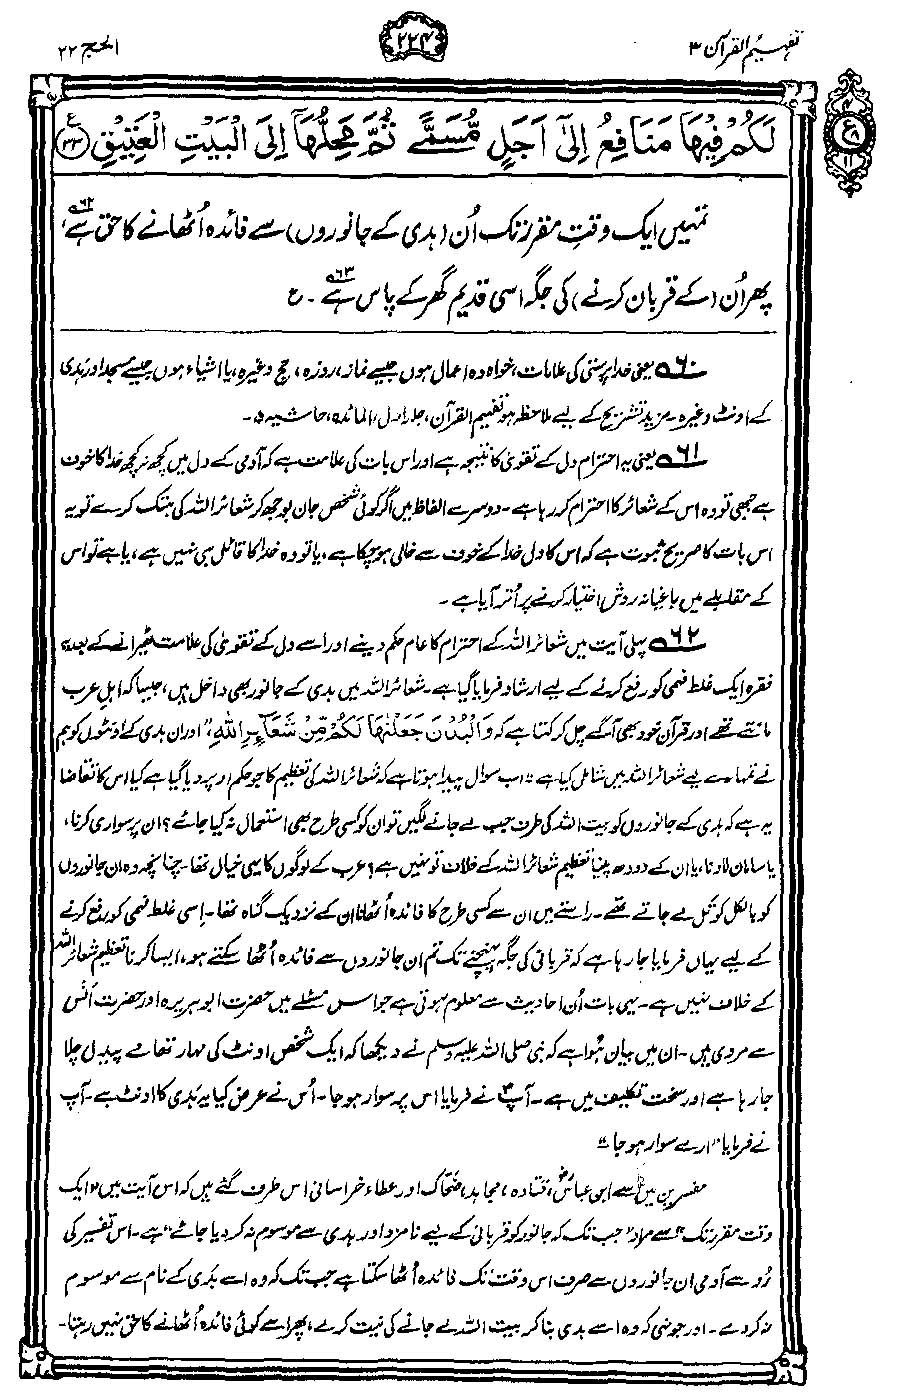 تفہیم القرآن ۳
۲۲۴
الحج ۲۲
لَكُمْ فِيهَا مَنَافِعُ إِلَىٰٓ اَجَلٍ مُّسَمًّى ثُمَّ مَحِلُّهَآ إِلَى الْبَيْتِ الْعَتِيْقِ ﴿۳۳﴾
ع
تمہیں ایک وقتِ مقرر تک اُن (ہدی کے جانوروں) سے فائدہ اُٹھانے کا حق ہے۶۲،
پھر اُن (کے قربان کرنے) کی جگہ اسی قدیم گھر کے پاس ہے۶۳۔ ع
۶۰؎ یعنی خدا پرستی کی علامات، خواہ وہ اعمال ہوں جیسے نماز، روزہ، حج وغیرہ، یا اشیاء ہوں جیسے مسجد اور ہَدی
کے اونٹ وغیرہ۔ مزید تشریح کے لیے ملاحظہ ہو تفہیم القرآن، جلد اول، المائدہ، حاشیہ ۵۔
۶۱؎ یعنی یہ احترام دل کے تقویٰ کا نتیجہ ہے اور اس بات کی علامت ہے کہ آدمی کے دل میں کچھ نہ کچھ خدا کا خوف
ہے جبھی تو وہ اس کے شعائر کا احترام کر رہا ہے۔ دوسرے الفاظ میں اگر کوئی شخص جان بوجھ کر شعائر اللہ کی ہتک کرے تو یہ
اس بات کا صریح ثبوت ہے کہ اس کا دل خدا کے خوف سے خالی ہو چکا ہے، یا تو وہ خدا کا قائل ہی نہیں ہے، یا ہے تو اس
کے مقابلے میں باغیانہ روش اختیار کرنے پر اُتر آیا ہے۔
۶۲؎ پہلی آیت میں شعائر اللہ کے احترام کا عام حکم دینے اور اسے دل کے تقویٰ کی علامت ٹھیرانے کے بعد یہ
فقرہ ایک غلط فہمی کو رفع کرنے کے لیے ارشاد فرمایا گیا ہے۔ شعائر اللہ میں ہدی کے جانور بھی داخل ہیں، جیسا کہ اہلِ عرب
مانتے تھے اور قرآن خود بھی آگے چل کر کہتا ہے کہ وَالْبُدْنَ جَعَلْنٰهَا لَكُمْ مِّنْ شَعَآئِرِ اللهِ، "اور ان ہدی کے اونٹوں کو ہم
نے تمہارے لیے شعائر اللہ میں شامل کیا ہے" اب سوال پیدا ہوتا ہے کہ شعائر اللہ کی تعظیم کا جو حکم اوپر دیا گیا ہے کیا اس کا تقاضا
یہ ہے کہ ہدی کے جانوروں کو بیت اللہ کی طرف جب لے جانے لگیں تو ان کو کسی طرح بھی استعمال نہ کیا جائے؟ ان پر سواری کرنا،
یا سامان لادنا، یا ان کے دودھ پینا تعظیم شعائر اللہ کے خلاف تو نہیں ہے؟ عرب کے لوگوں کا یہی خیال تھا۔ چنانچہ وہ ان جانوروں
کو بالکل کوتل لے جاتے تھے۔ راستے میں ان سے کسی طرح کا فائدہ اُٹھانا ان کے نزدیک گناہ تھا۔ اِسی غلط فہمی کو رفع کرنے
کے لیے یہاں فرمایا جا رہا ہے کہ قربانی کی جگہ پہنچنے تک تم ان جانوروں سے فائدہ اُٹھا سکتے ہو، ایسا کرنا تعظیم شعائر اللہ
کے خلاف نہیں ہے۔ یہی بات اُن احادیث سے معلوم ہوتی ہے جو اس مسئلے میں حضرت ابوہریرہ اور حضرت اَنَس
سے مروی ہیں۔ ان میں بیان ہُوا ہے کہ نبی صلی اللہ علیہ وسلم نے دیکھا کہ ایک شخص اونٹ کی مہار تھامے پیدل چلا
جا رہا ہے اور سخت تکلیف میں ہے۔ آپؐ نے فرمایا اس پر سوار ہو جا۔ اُس نے عرض کیا یہ ہَدی کا اونٹ ہے۔ آپ
نے فرمایا "ارے سوار ہو جا"
مفسرین میں سے ابنِ عباسؓ، قتادہ، مجاہد، ضحّاک اور عطاء خراسانی اس طرف گئے ہیں کہ اس آیت میں "ایک
وقت مقرر تک" سے مراد "جب تک کہ جانور کو قربانی کے لیے نامزد اور ہدی سے موسوم نہ کر دیا جائے" ہے۔ اس تفسیر کی
رُو سے آدمی ان جانوروں سے صرف اس وقت تک فائدہ اُٹھا سکتا ہے جب تک کہ وہ اسے ہَدی کے نام سے موسوم
نہ کر دے۔ اور جونہی کہ وہ اسے ہدی بنا کر بیت اللہ لے جانے کی نیت کرے، پھر اسے کوئی فائدہ اُٹھانے کا حق نہیں رہتا۔